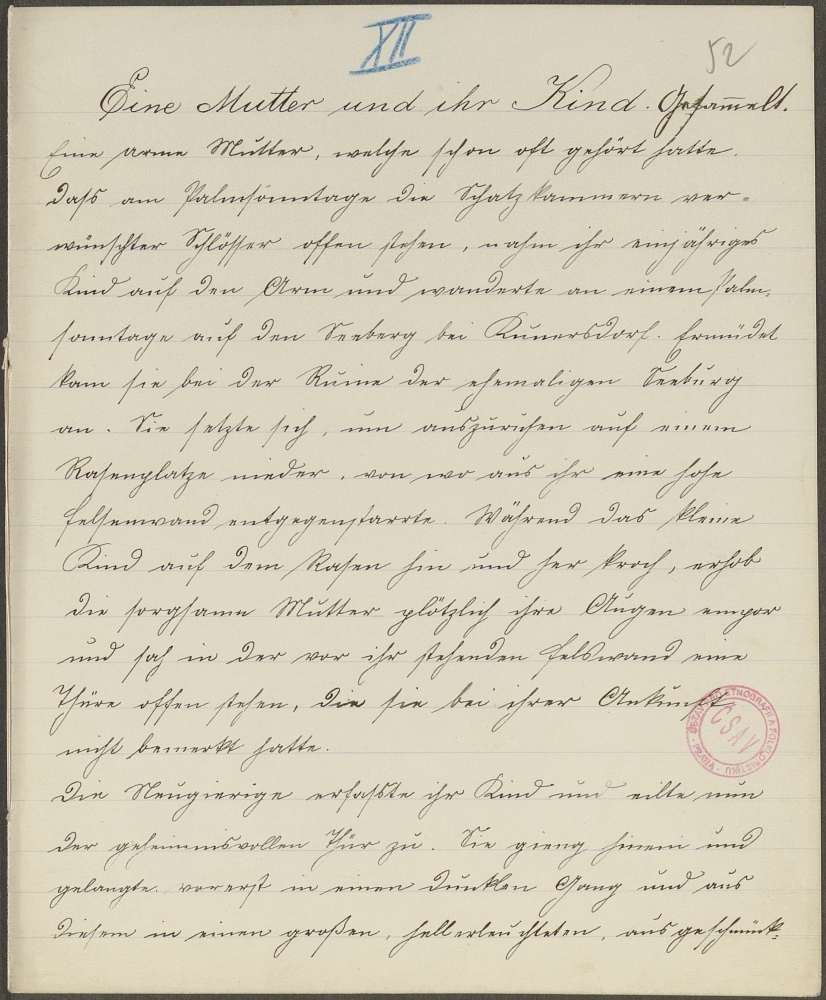 XII
52
Eine Mutter und ihr Kind. Gesammelt.
Eine arme Mutter, welche schon oft gehört hatte,
daß am Palmsonntage die Schatzkammern ver-
wünschter Schlösser offen stehen, nahm ihr einjähriges
Kind auf den Arm und wanderte an einem Palm-
sonntage auf den Seeberg bei Kunersdorf. Ermüdet
kam sie bei der Ruine der ehemaligen Seeburg
an. Sie setzte sich, um auszuruhen auf einem
Rasenplatze nieder, von wo aus ihr eine hohe
Felsenwand entgegenstarrte. Während das kleine
Kind auf dem Rasen hin und her kroch, erhob
die sorgsame Mutter plötzlich ihre Augen empor
und sah in der vor ihr stehenden Felswand eine
Thüre offen stehen, die sie bei ihrer Ankunft
nicht bemerkt hatte.
Die Neugierige erfasste ihr Kind und eilte nun
der geheimnisvollen Thür zu. Sie gieng hinein und
gelangte vorerst in einen dunklen Gang und aus
diesem in einen großen, hell erleuchteten, ausgeschmück-
ČSAV